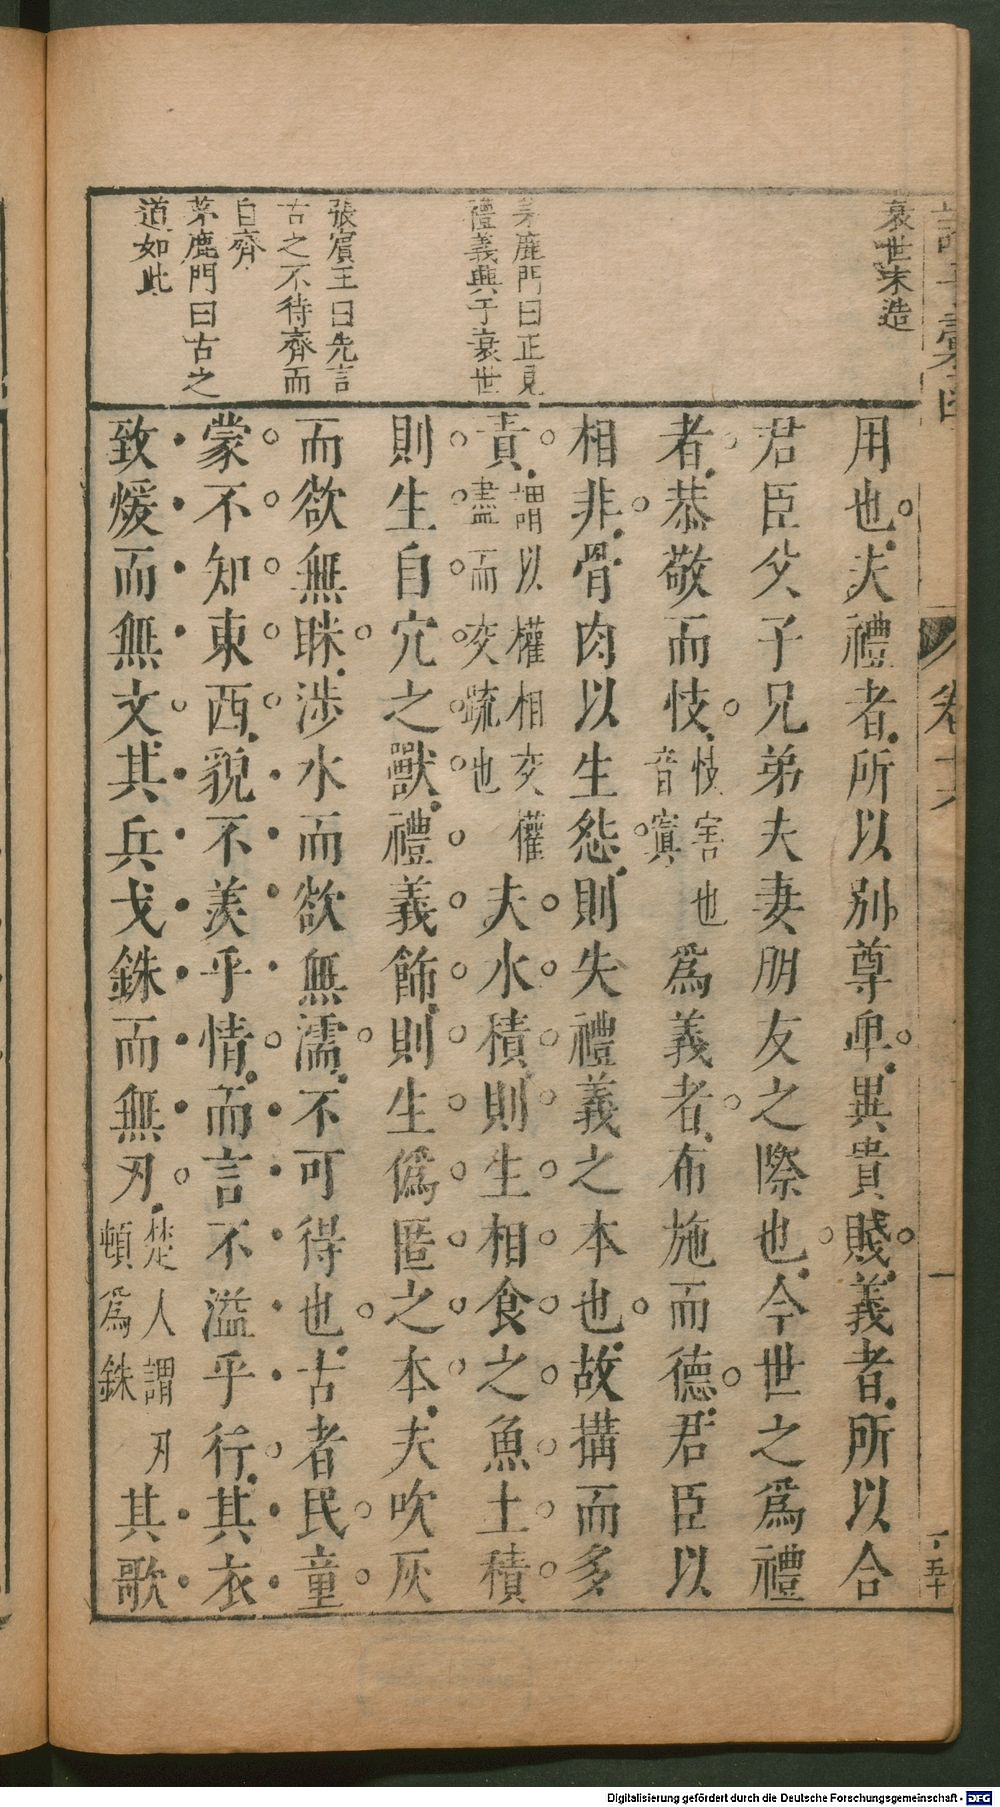 衰世末造
茅鹿門曰正見
禮義興于衰世
張賓王曰先言
古之不待齊而
自齊
茅鹿門曰古之
道如此
用也夫禮者所以別尊卑異貴賤義者所以合
君臣父子兄弟夫妻朋友之際也今世之爲禮
者恭敬而忮忮害也音寘爲義者布施而德君臣以
相非骨肉以生怨則失禮義之本也故搆而多
責謂以權相交權盡而交疏也夫水積則生相食之魚土積
則生自宂之獸禮義飾則生僞匿之本夫吹灰
而欲無眯涉水而欲無濡不可得也古者民童
蒙不知東西貌不羨乎情而言不溢乎行其衣
致煖而無文其兵戈銖而無刃楚人謂刃頓爲銖其歌
卷十六
一
五十
Digitalisierung gefördert durch die Deutsche Forschungsgemeinschaft - DFG